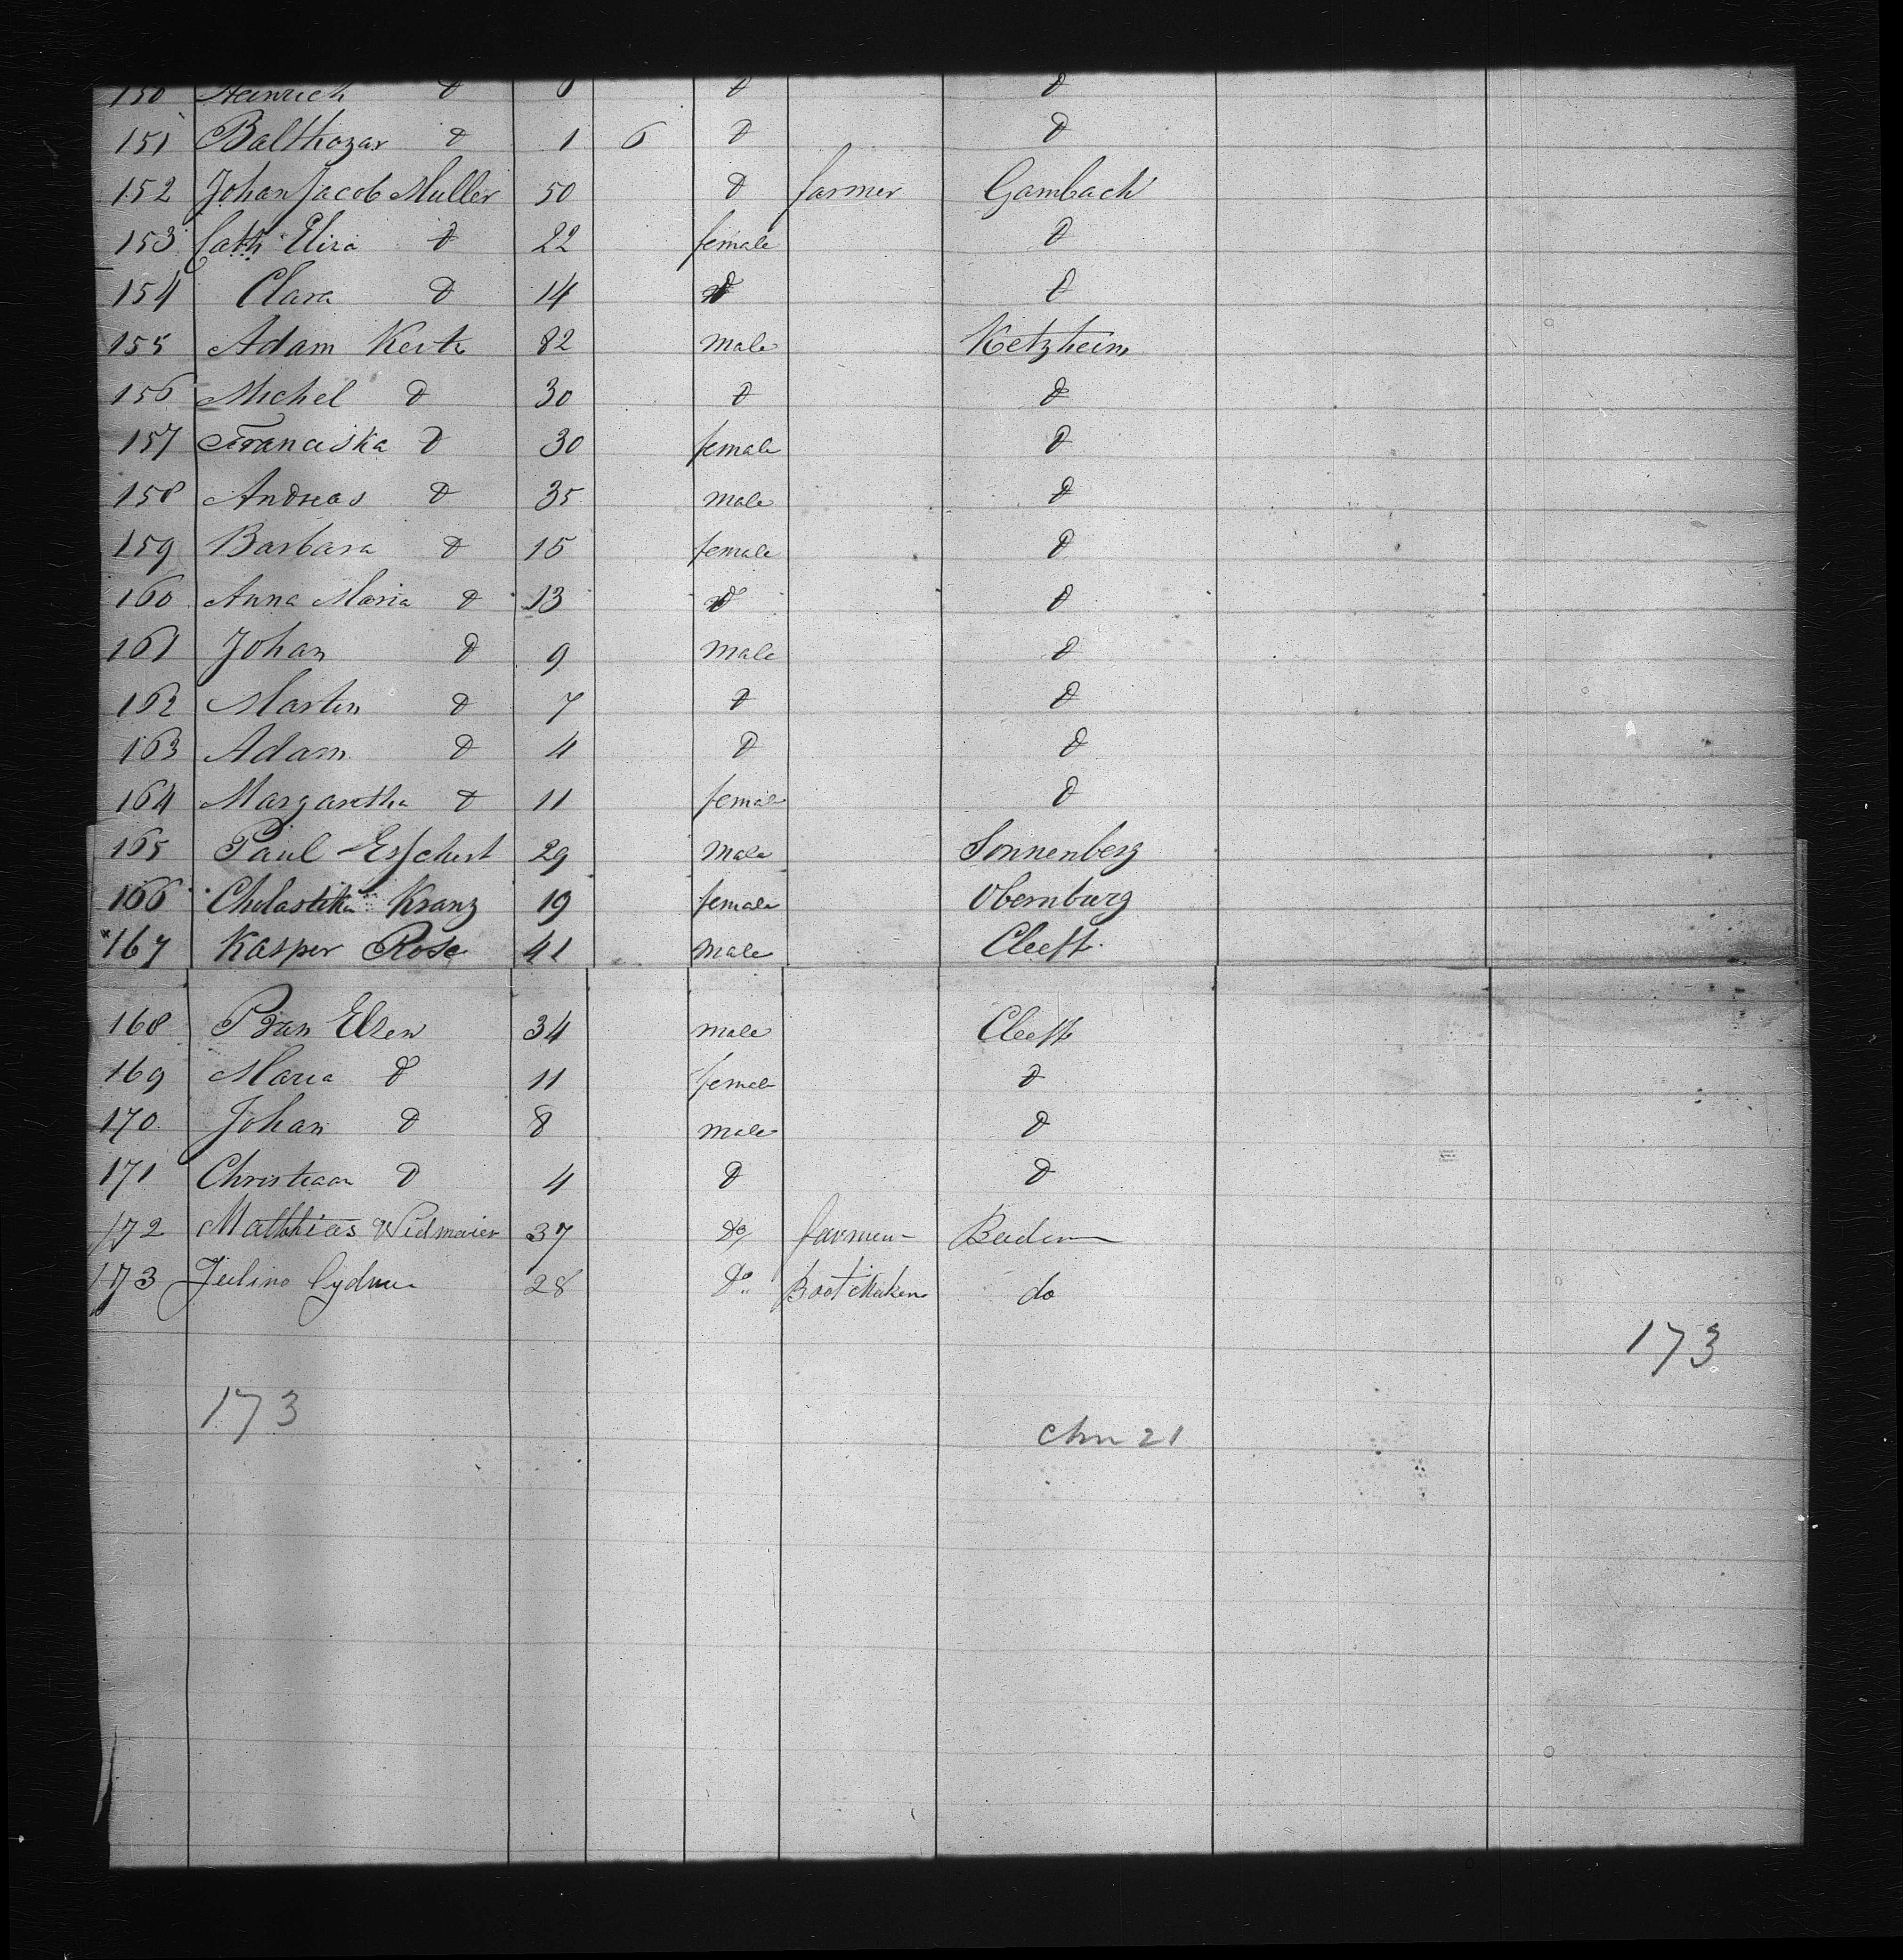 150 Heinrich d d d
151 Balthozar d 1 6 d d
152 Johan Jacob Muller 50 d farmer Gambach
153 Cath Elisa d 22 female d
154 Clara d 14 d d
155 Adam Kertz 82 male Ketzheim
156 Michel d 30 d d
157 Franciska d 30 female d
158 Andreas d 35 male d
159 Barbara d 15 female d
160 Anna Maria d 13 d d
161 Johan d 9 male d
162 Martin d 7 d d
163 Adam d 4 d d
164 Margaretha d 11 female d
165 Paul 29 male Sonnenberg
166 Kranz 19 female Obernburg
167 Kasper Rose 41 male Cleeff
168 Elsen 34 male Cleeff
169 Maria d 11 female d
170 Johan d 8 male d
171 Christiaan d 4 d d
172 Matthias Widmaier 37 do farmer Baden
173 28 Do Boot Maker do
173
173
21